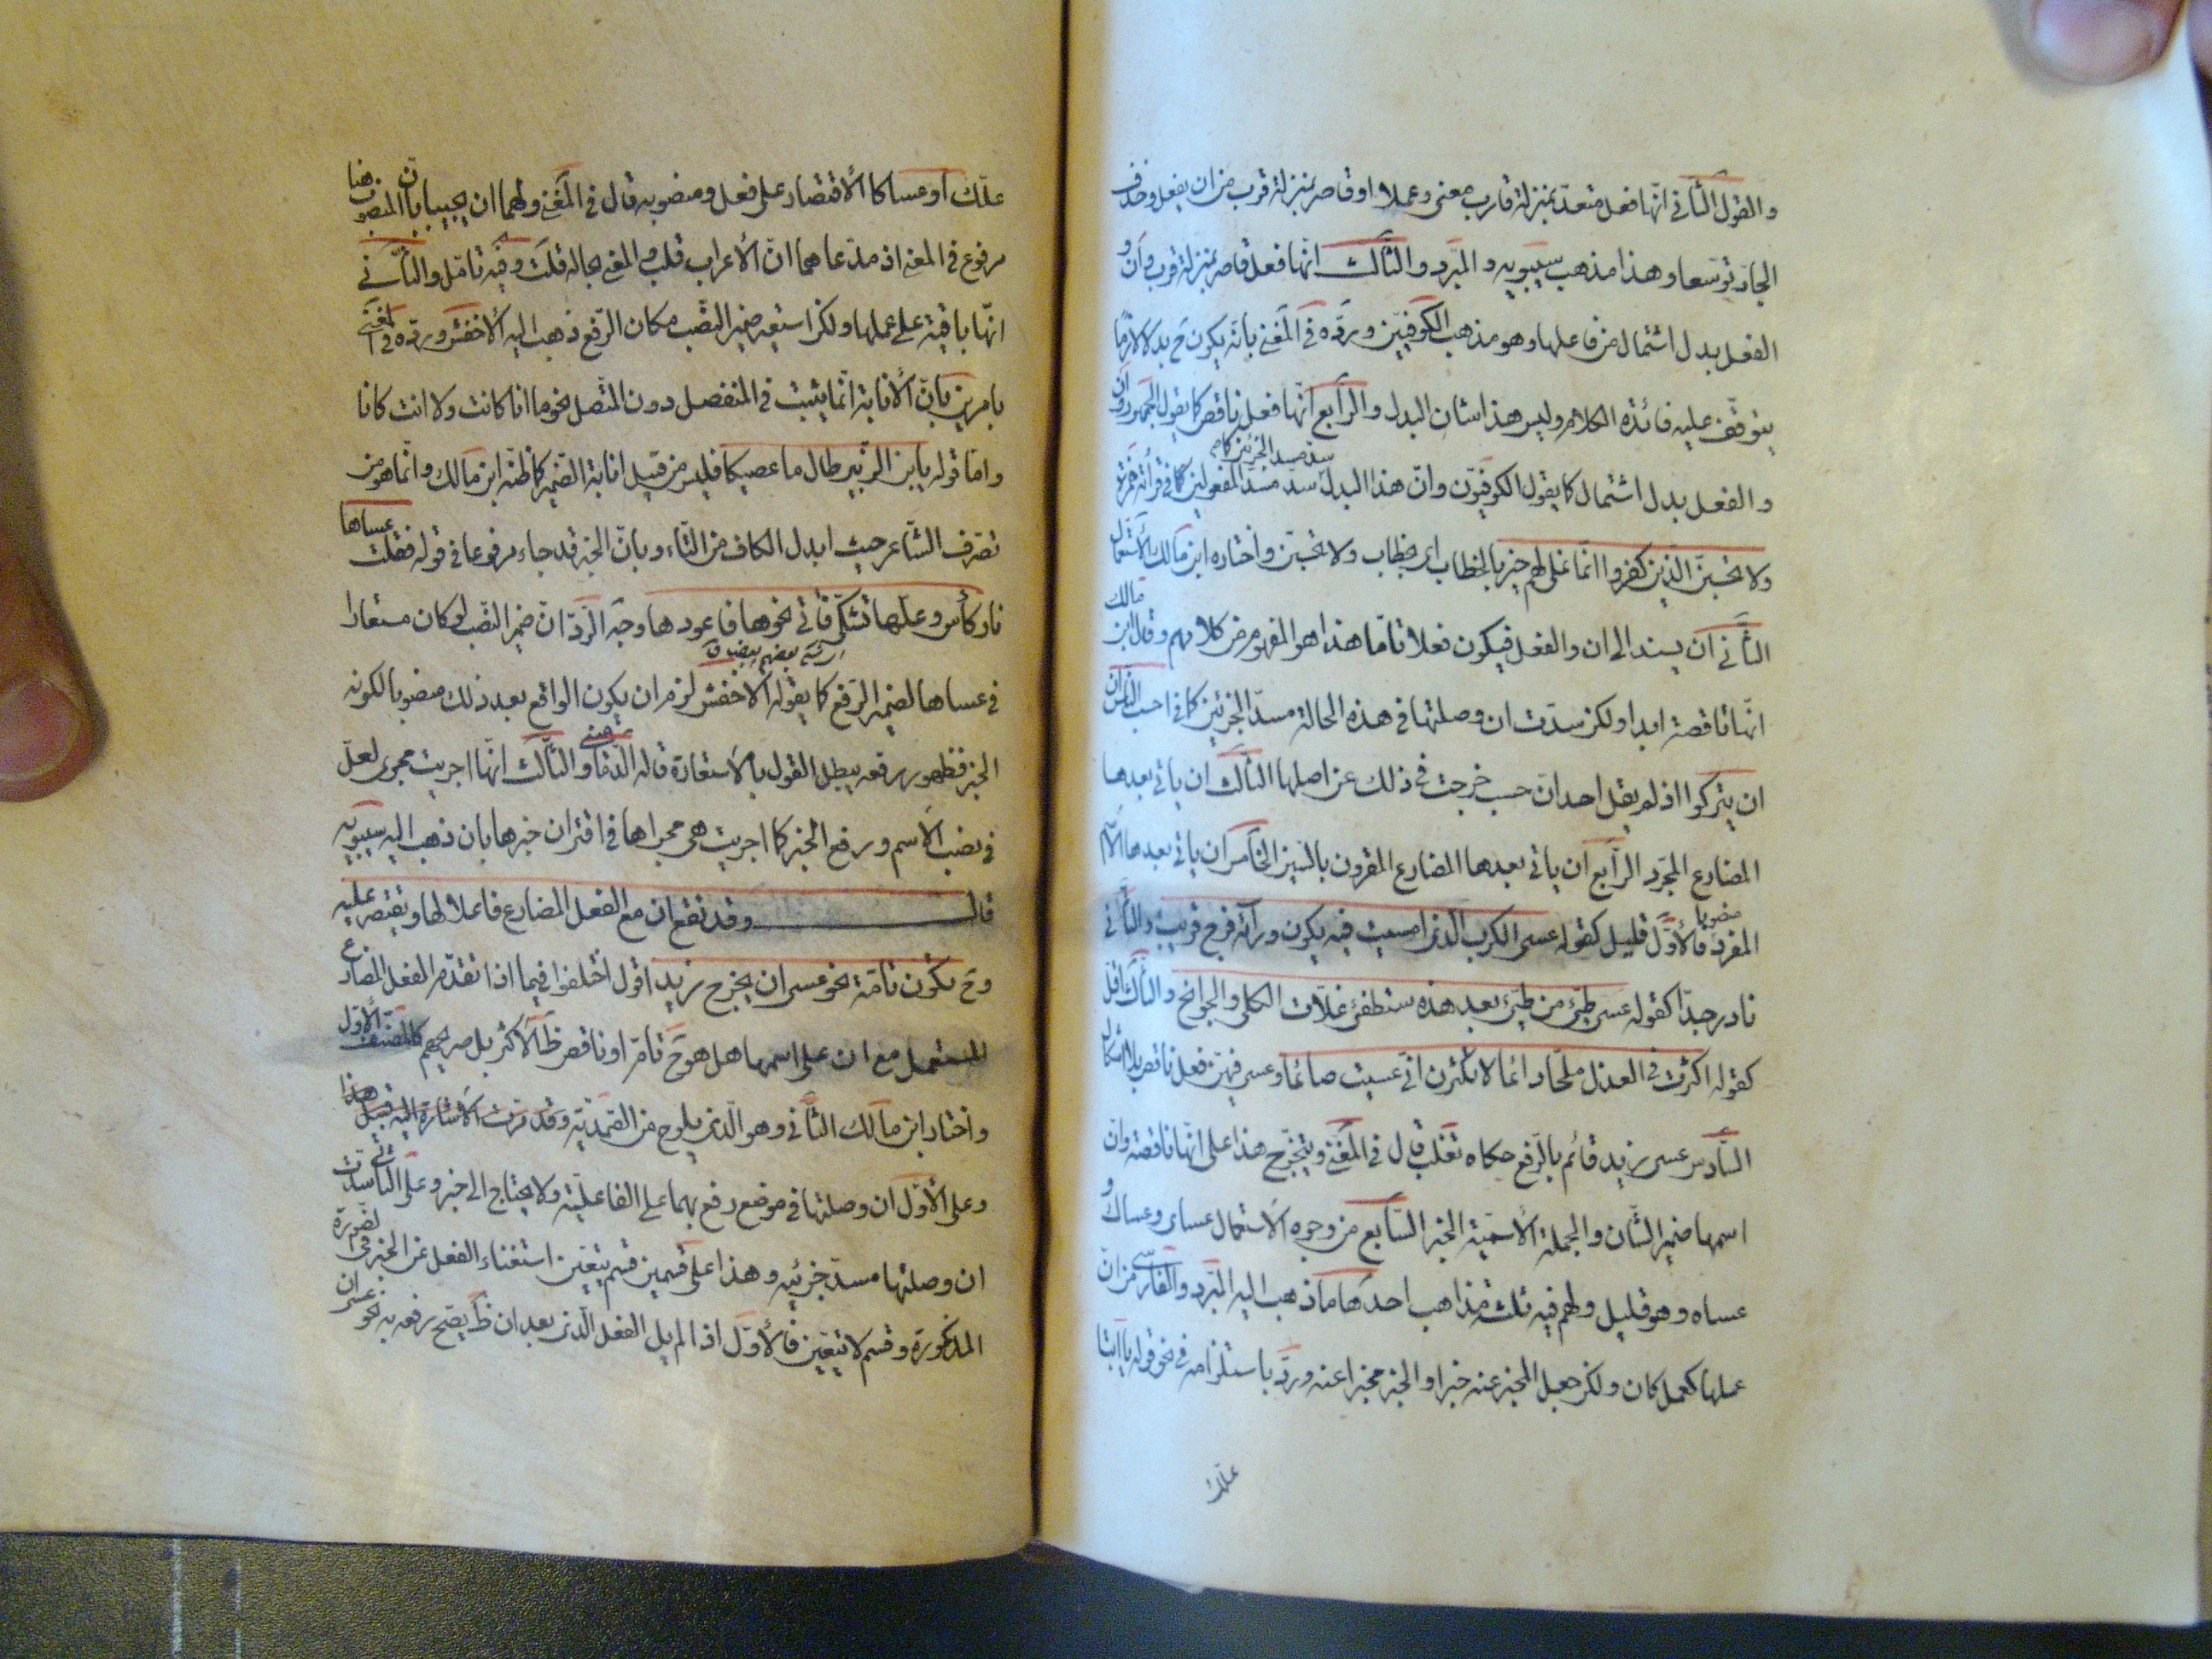 والقول الثانی انها فعل متعد بمنزلة قارب معنی وعملا او قاصر بمنزلة قرب من ان یفعل وحذف
الجار توسعا وهذا مذهب سیبویه والمبرد والثالث انها فعل قاصر بمنزلة قرب وان و
الفعل بدل اشتمال من فاعلها وهو مذهب الکوفیین ورده فی المغنی بانه یکون ح بدلا لازما
یتوقف علیه فائدة الکلام ولیس هذا شان البدل والرابع انها فعل ناقص کما یقول الجمهور وان
والفعل بدل اشتمال کما یقول الکوفیون وان هذا البدل سد مسد الجزئین کما سد مسد المفعولین کما فی قرائة حمزة
ولا تحسبن الذین کفروا انما نملی لهم خیر بالخطاب ای بخطاب ولا تحسبن واختاره ابن مالک الاستعمال
الثانی ان یسند الی ان والفعل فیکون فعلا تاما هذا هو المفهوم من کلامهم وقال ابن مالک
انها ناقصة ابدا ولکن سدت ان وصلتها فی هذه الحالة مسد الجزئین کما فی احسب الناس ان
ان یترکوا اذ لم یقل احد ان حسب خرجت فی ذلک عن اصلها الثالث ان یاتی بعدها
المضارع المجرد الرابع ان یاتی بعدها المضارع المقرون بالسین الخامس ان یاتی بعدها الاسم
المفرد منصوبا فالاول قلیل کقوله عسی الکرب الذی امسیت فیه یکون ورائه فرج قریب والثانی
نادر جدا کقوله عسی طیئ من طیئ بعد هذه ستطفئ غلات الکلی والجوانح والثالث اقل
کقوله اکثرت فی العذل ملحا دائما لا تکثرن انی عسیت صائما وعسی فیهن فعل ناقص بلا اشکال
السادس عسی زید قائم بالرفع حکاه ثعلب قال فی المغنی ویتخرج هذا علی انها ناقصة وان
اسمها ضمیر الشان والجملة الاسمیة الخبر السابع من وجوه الاستعمال عسای وعساک و
عساه وهو قلیل ولهم فیه ثلث مذاهب احدها ما ذهب الیه المبرد والفارسی من ان
عملها کعمل کان ولکن جعل المخبر عنه خبرا والخبر مخبرا عنه ورد باستلزامه فی نحو قوله یا ابتا
علک
علک او عساکا الاقتصار علی فعل ومنصوبه قال فی المغنی ولهما ان یجیبا بان المنصوب هنا
مرفوع فی المعنی اذ مدعاهما ان الاعراب قلب والمعنی بحاله قلت وفیه تامل والثانی
انها باقیة علی عملها ولکن استعیر ضمیر النصب مکان الرفع ذهب الیه الاخفش ورده فی المغنی
بامرین بان الانابة انما یثبت فی المنفصل دون المتصل نحو ما انا کانت ولا انت کانا
واما قوله یا ابن الزبیر طال ما عصیکا فلیس من قبیل انابة الضمیر کما ظنه ابن مالک وانما هو من
تصرف الشاعر حیث ابدل الکاف من التاء وبان الخبر قد جاء مرفوعا فی قوله فقلت عساها
نار کأس وعلها تشکی فاتی نحوها فاعودها وجه الرد ان ضمیر النصب لو کان مستعارا
فی عساها لضمیر الرفع کما یقوله الاخفش لزم ان یکون الواقع بعد ذلک منصوبا لکونه
الخبر فظهور رفعه یبطل القول بالاستعارة قاله الدمامینی والثالث انها اجریت مجری لعل
فی نصب الاسم ورفع الخبر کما اجریت هی مجراها فی اقتران خبرها بان ذهب الیه سیبویه
قال وقد تقع ان مع الفعل المضارع فاعلا لها ویقتصر علیه
وح تکون تامة نحو عسی ان یخرج زید اقول اختلفوا فیما اذا تقدم الفعل المضارع
المستعمل مع ان علی اسمها هل هو ح تام او ناقص ظ الاکثر بل صریحهم کالمصنف الاول
واختار ابن مالک الثانی وهو الذی یلوح من الصمدیة وقد مرت الاشارة الیه قبیل هذا
وعلی الاول ان وصلتها فی موضع رفع بهما علی الفاعلیة ولا یحتاج الی خبر وعلی الثانی سدت
ان وصلتها مسد جزئیه وهذا علی قسمین قسم یتعین استغناء الفعل عن الخبر فی الصورة
المذکورة وقسم لا یتعین فالاول اذا لم یل الفعل الذی بعد ان ظ یصح رفعه به نحو عسی ان